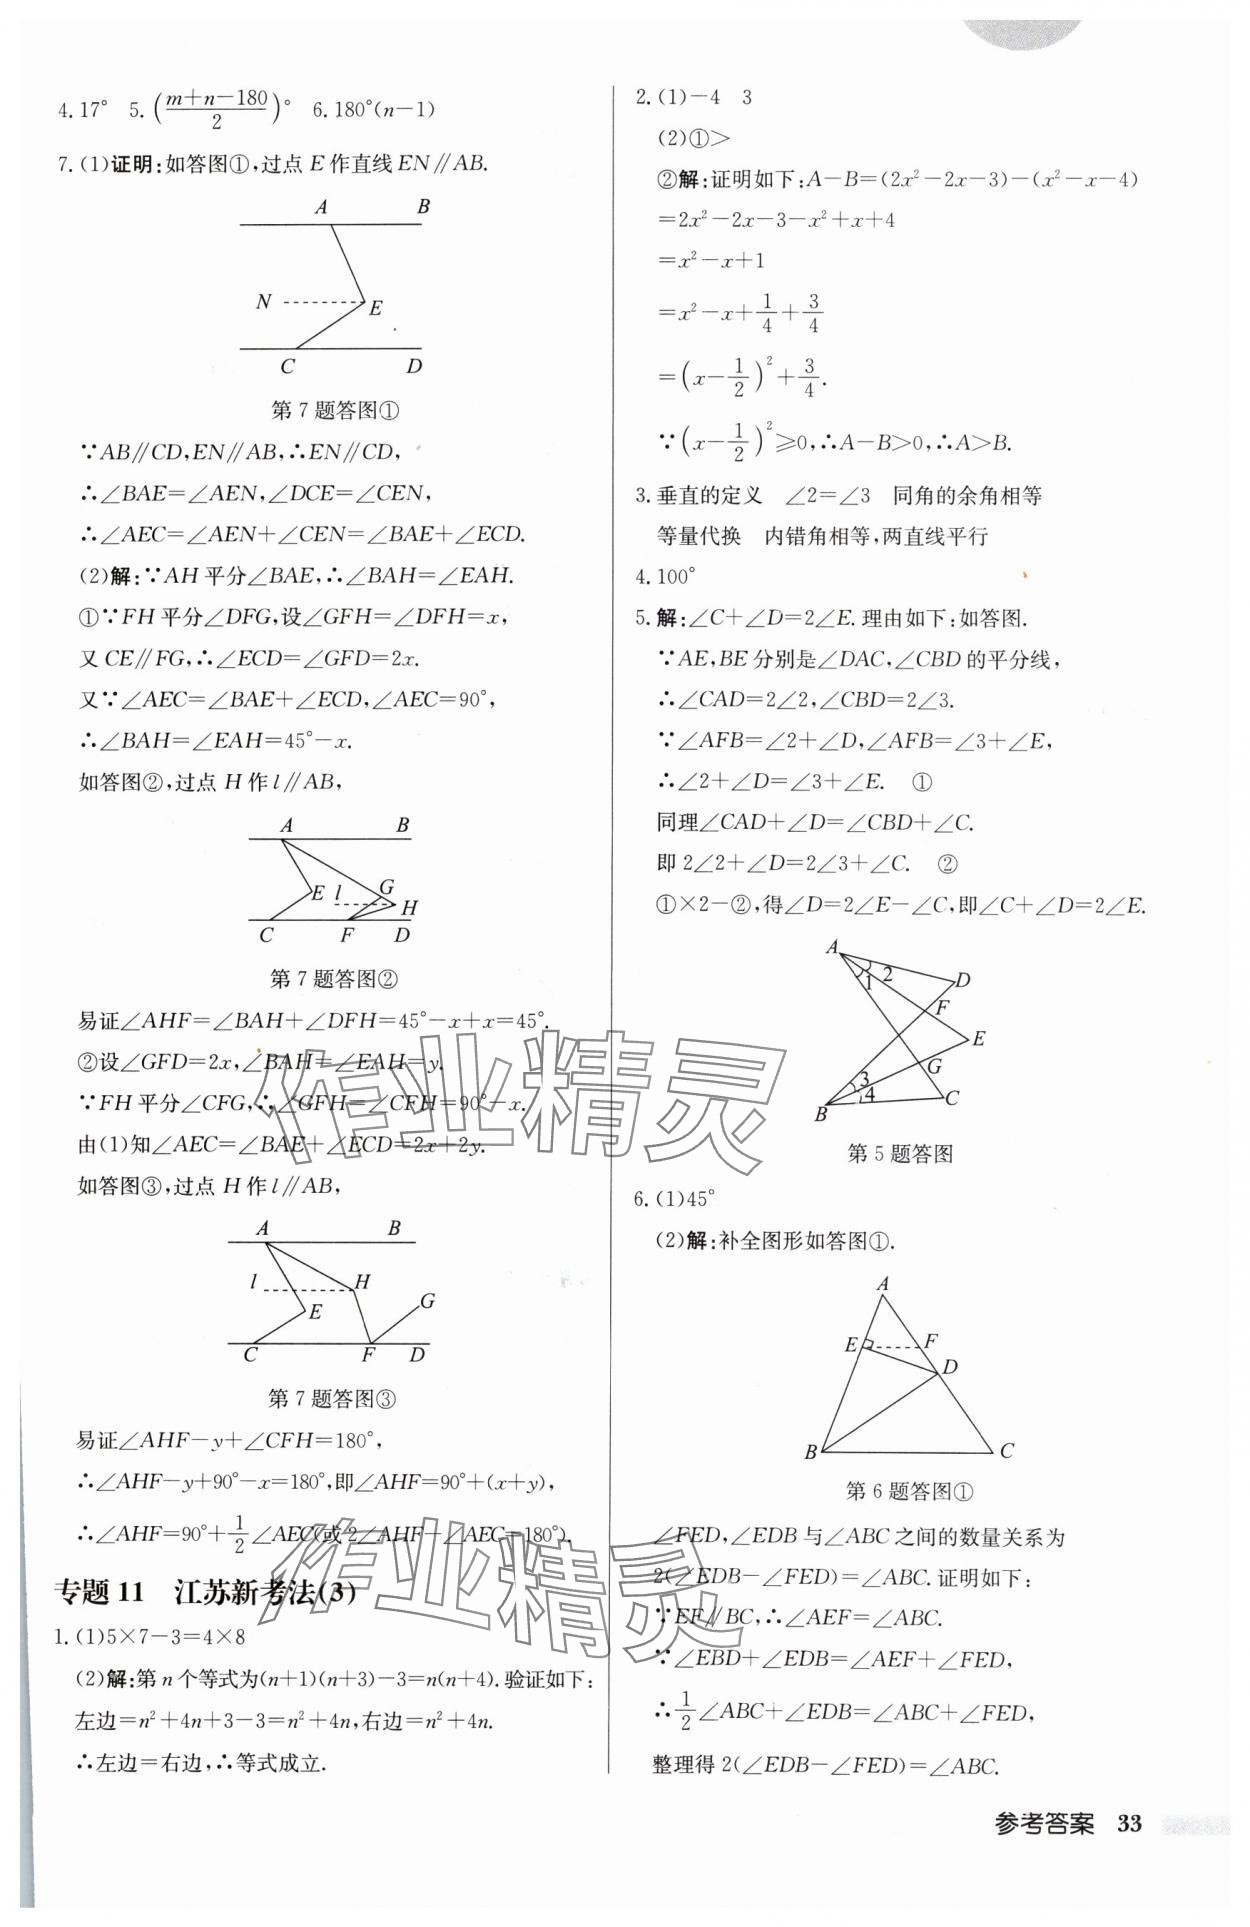 4.17° 5.((m+n-180)/2)° 6.180°(n-1)
7.(1)证明:如答图①,过点 E 作直线 EN∥AB.
A B
N E
C D
第 7 题答图①
∵AB∥CD,EN∥AB,∴EN∥CD,
∴∠BAE=∠AEN,∠DCE=∠CEN,
∴∠AEC=∠AEN+∠CEN=∠BAE+∠ECD.
(2)解:∵AH 平分∠BAE,∴∠BAH=∠EAH.
①∵FH 平分∠DFG,设∠GFH=∠DFH=x,
又 CE∥FG,∴∠ECD=∠GFD=2x.
又∵∠AEC=∠BAE+∠ECD,∠AEC=90°,
∴∠BAH=∠EAH=45°-x.
如答图②,过点 H 作 l∥AB,
A B
E l G
H
C F D
第 7 题答图②
易证∠AHF=∠BAH+∠DFH=45°-x+x=45°.
②设∠GFD=2x,∠BAH=∠EAH=y.
∵FH 平分∠CFG,∴∠GFH=∠CFH=90°-x.
由(1)知∠AEC=∠BAE+∠ECD=2x+2y.
如答图③,过点 H 作 l∥AB,
A B
l H
E G
C F D
第 7 题答图③
易证∠AHF-y+∠CFH=180°,
∴∠AHF-y+90°-x=180°,即∠AHF=90°+(x+y),
∴∠AHF=90°+1/2∠AEC(或 2∠AHF-∠AEC=180°).
专题 11 江苏新考法(3)
1.(1)5×7-3=4×8
(2)解:第 n 个等式为(n+1)(n+3)-3=n(n+4).验证如下:
左边=n²+4n+3-3=n²+4n,右边=n²+4n.
∴左边=右边,∴等式成立.
2.(1)-4 3
(2)①>
②解:证明如下:A-B=(2x²-2x-3)-(x²-x-4)
=2x²-2x-3-x²+x+4
=x²-x+1
=x²-x+1/4+3/4
=(x-1/2)²+3/4.
∵(x-1/2)²≥0,∴A-B>0,∴A>B.
3.垂直的定义 ∠2=∠3 同角的余角相等
等量代换 内错角相等,两直线平行
4.100°
5.解:∠C+∠D=2∠E.理由如下:如答图.
∵AE,BE 分别是∠DAC,∠CBD 的平分线,
∴∠CAD=2∠2,∠CBD=2∠3.
∵∠AFB=∠2+∠D,∠AFB=∠3+∠E,
∴∠2+∠D=∠3+∠E. ①
同理∠CAD+∠D=∠CBD+∠C.
即 2∠2+∠D=2∠3+∠C. ②
①×2-②,得∠D=2∠E-∠C,即∠C+∠D=2∠E.
A
1 2 D
F
E
G
3
4
B C
第 5 题答图
6.(1)45°
(2)解:补全图形如答图①.
A
E F
D
B C
第 6 题答图①
∠FED,∠EDB 与∠ABC 之间的数量关系为
2(∠EDB-∠FED)=∠ABC.证明如下:
∵EF∥BC,∴∠AEF=∠ABC.
∵∠EBD+∠EDB=∠AEF+∠FED,
∴1/2∠ABC+∠EDB=∠ABC+∠FED,
整理得 2(∠EDB-∠FED)=∠ABC.
参考答案 33
作业精灵
作业精灵